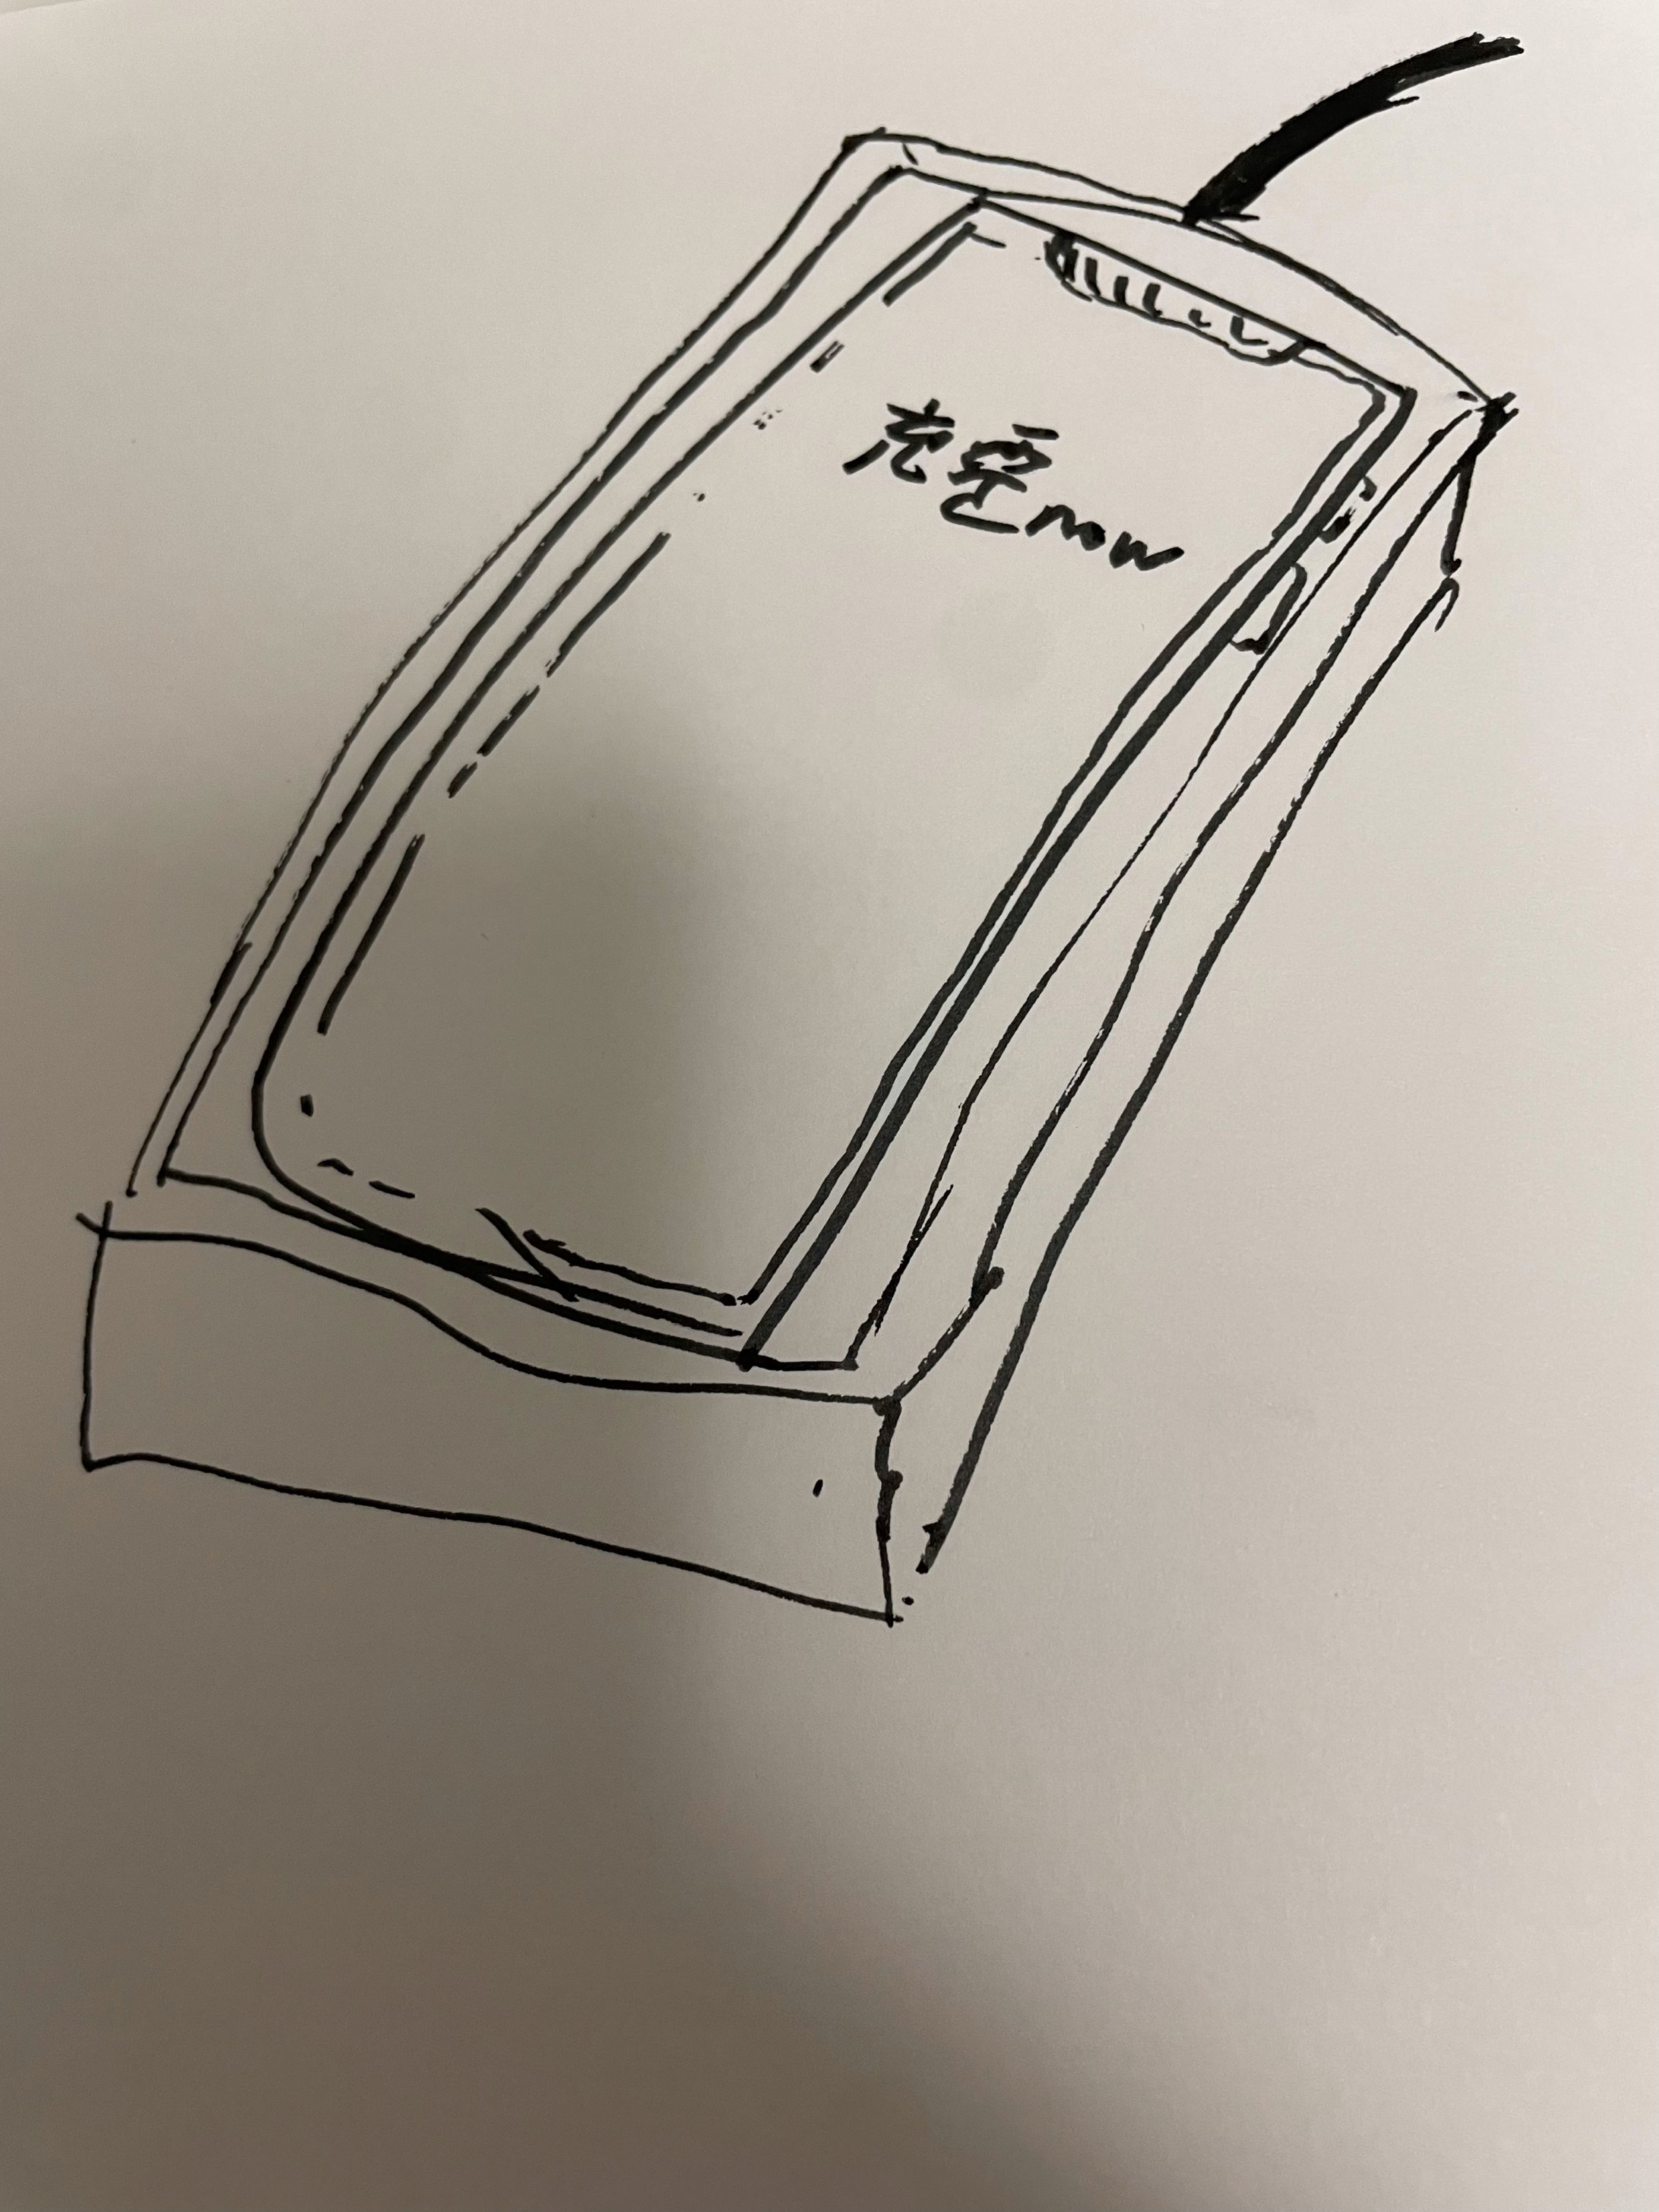 充電now